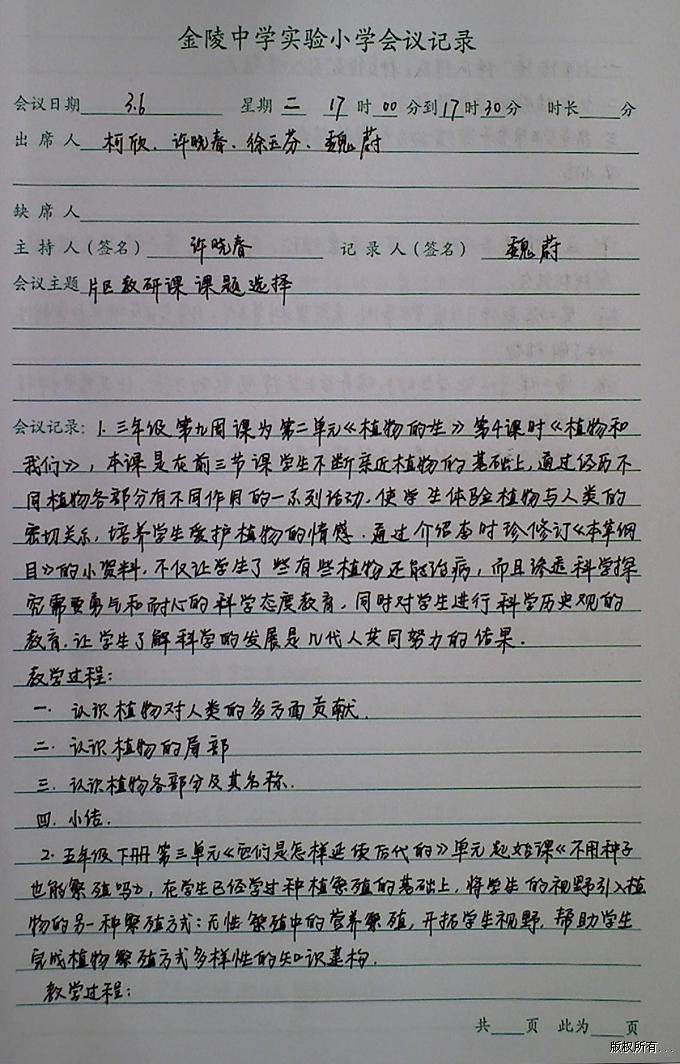 金陵中学实验小学会议记录
会议日期 3.6 星期 二 17 时 00 分到 17 时 30 分 时长 分
出席人 柯欣、许晓春、徐玉芬、魏蔚
缺席人
主持人(签名) 许晓春 记录人(签名) 魏蔚
会议主题 片区教研课课题选择
会议记录: 1. 三年级第九周课为第二单元《植物的生》第4课时《植物和
我们》,本课是在前三节课学生不断亲近植物的基础上,通过经历不
同植物各部分有不同作用的一系列活动,使学生体验植物与人类的
密切关系,培养学生爱护植物的情感.通过介绍李时珍修订《本草纲
目》的小资料,不仅让学生了些有些植物还能治病,而且渗透科学探
究需要勇气和耐心的科学态度教育,同时对学生进行科学历史观的
教育,让学生了解科学的发展是几代人共同努力的结果.
教学过程:
一. 认识植物对人类的多方面贡献.
二. 认识植物的局部
三. 认识植物各部分及其名称.
四. 小结.
2. 五年级下册第三单元《它们是怎样延续后代的》单元起始课《不用种子
也能繁殖吗》,在学生已经学过种植繁殖的基础上,将学生的视野引入植
物的另一种繁殖方式:无性繁殖中的营养繁殖,开拓学生视野,帮助学生
完成植物繁殖方式多样性的知识建构.
教学过程:
共 页 此为 页
版权所有...